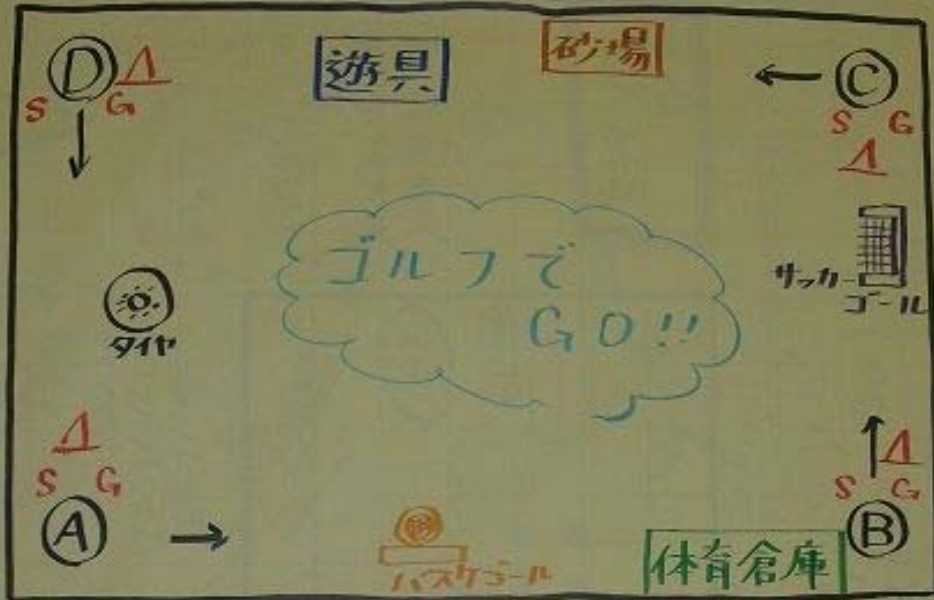 D
S G
遊具
砂場
C
S G
サッカー
ゴール
ゴルフで
GO!!
タイヤ
S G
A
バスケゴール
体育倉庫
S G
B